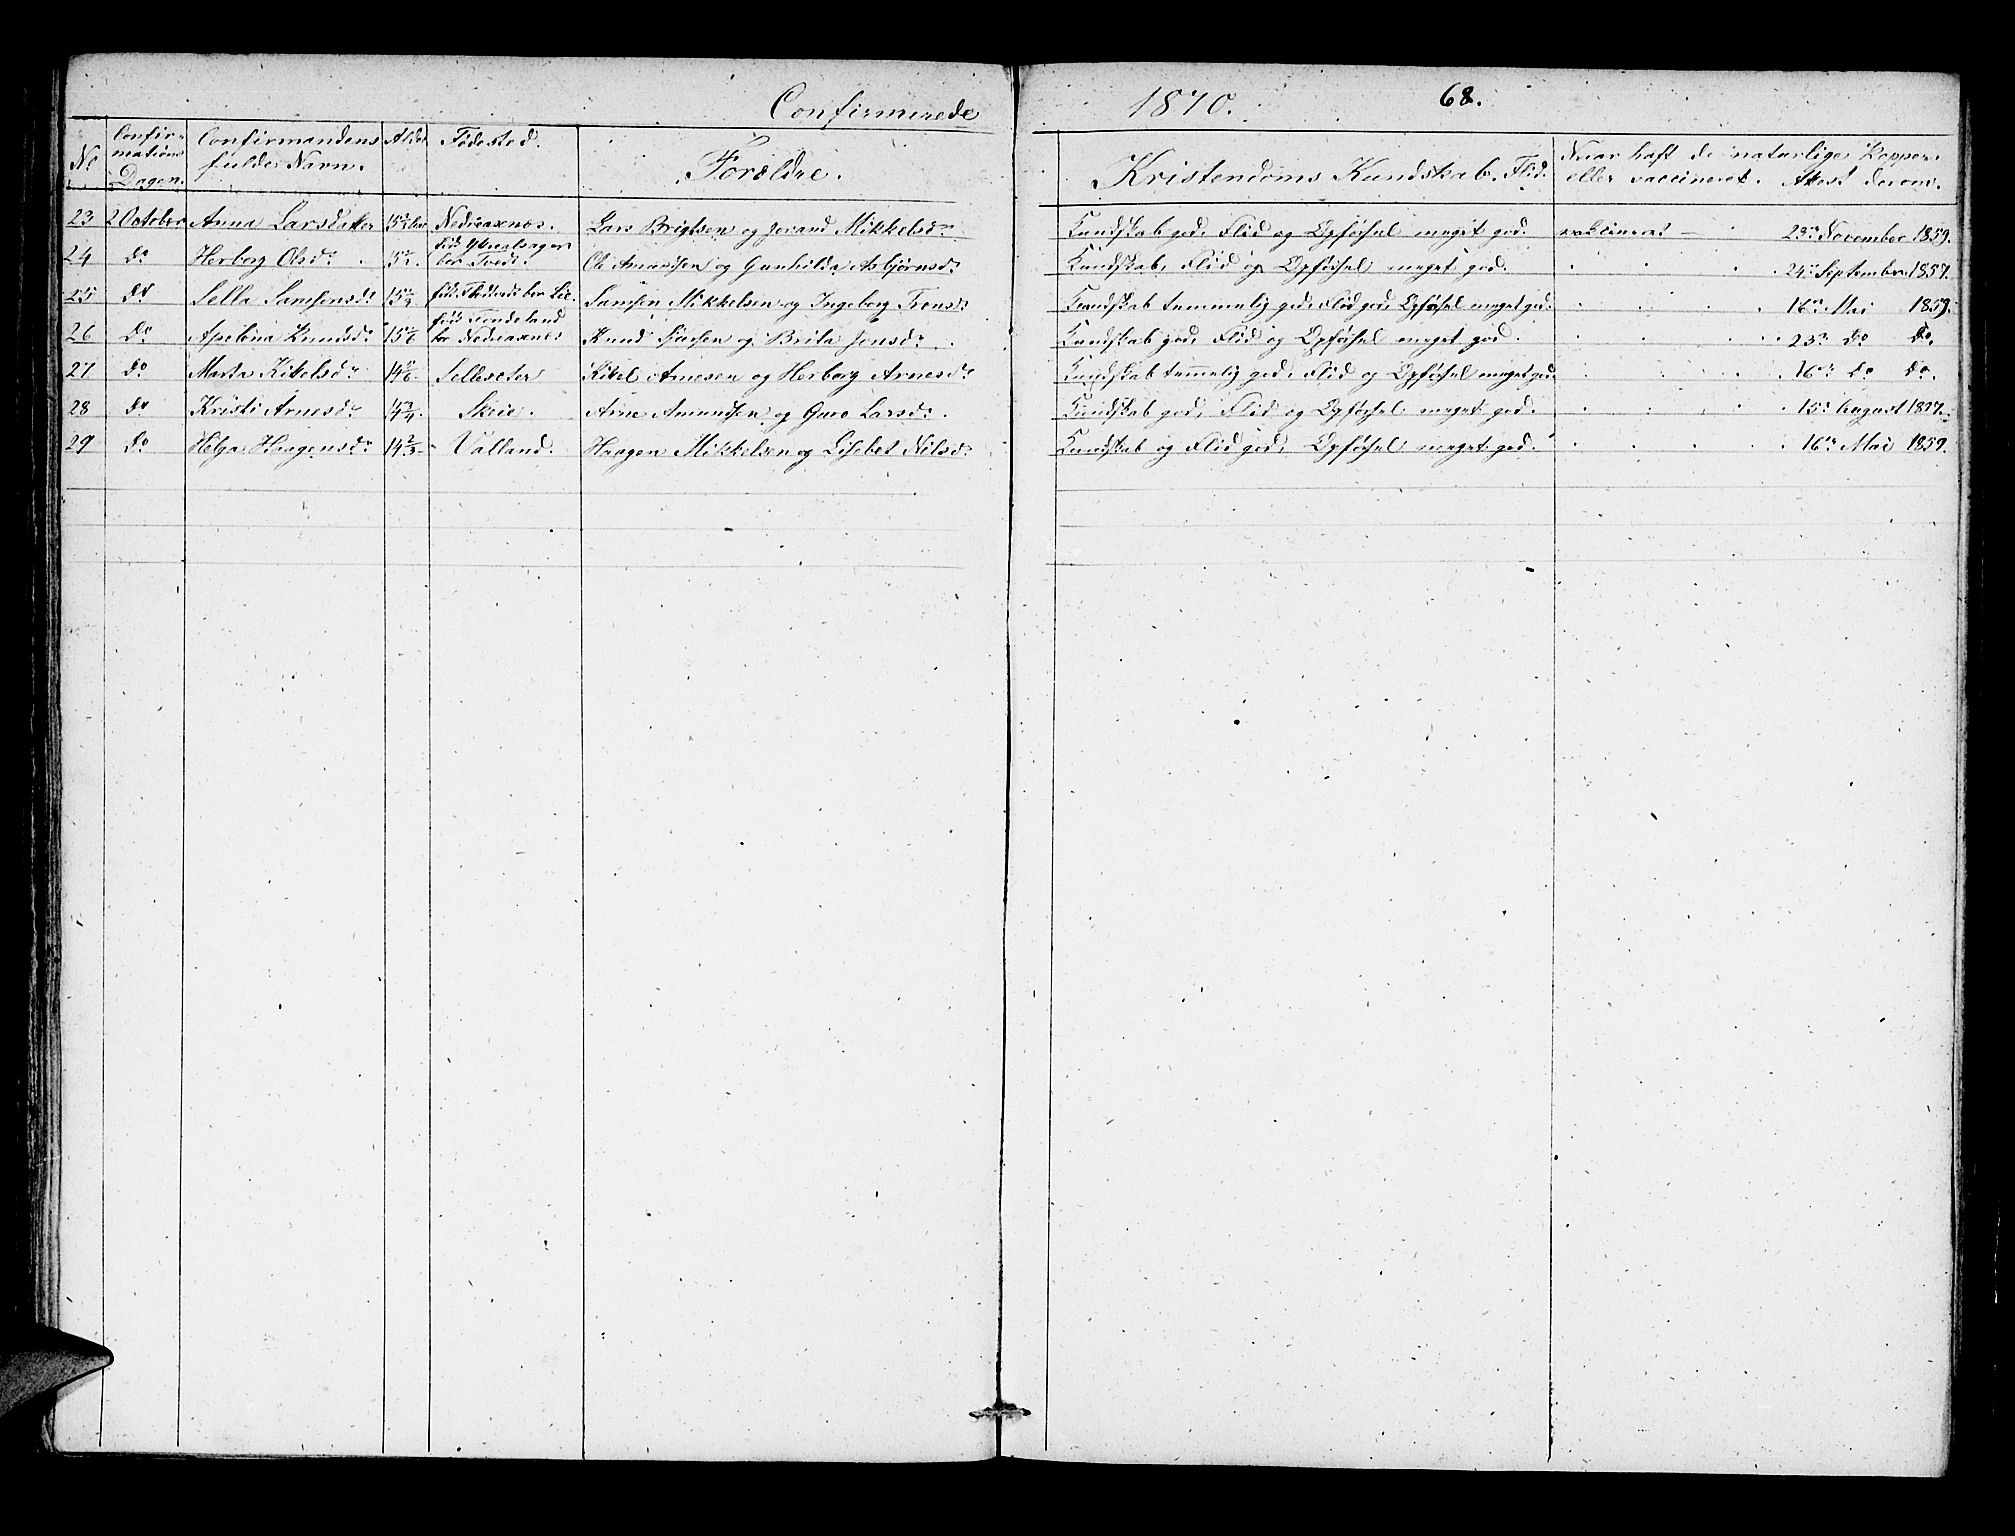 Confirmerede 1870. 68.
No Confirmations Dagen. Confirmandens fulde Navn. Alder Fødested. Forældre. Kristendoms Kundskab. Flid. Naar haft de naturlige Kopper eller vaccineret. Attest derom.
23 2 October Anna Larsdatter 15 Aar Nedreaxnæs. Lars Brigtsen og Jorand Mikkelsdr. Kundskab god, Flid og Opførsel meget god. vaccineret 23de November 1859.
24 Do Herborg Olsdr. 15 bor Tvedt. Ole Amundsen og Gunhilda Asbjørnsdr. Kundskab, Flid og Opførsel meget god. 24de September 1857.
25 Do Sella Samsonsdr. 15 bor Lie. Samsen Mikkelsen og Ingeborg Tronsdr. Kundskab temmelig god, Flid god, Opførsel meget god. 16de Mai 1859.
26 Do Knudsdr. 15 bor Nedreaxnæs Knud og Brita Jonsdr. Kundskab god, Flid og Opførsel meget god. 23de Do Do.
27 Do Marta Kitelsdr. 14 5/6 Selleseter Kitel Arnesen og Herborg Arnesdr. Kundskab temmelig god, Flid og Opførsel meget god. 16de Do Do.
28 Do Kristi Arnesdr. 14 3/4 Skeie. Arne Amundsen og Guro Larsdr. Kundskab god, Flid og Opførsel meget god. 15de August 1857.
29 Do Helga Haagensdr. 14 2/3 Valland. Haagen Mikkelsen og Lisebet Nilsdr. Kundskab og Flid god, Opførsel meget god. 16de Mai 1859.